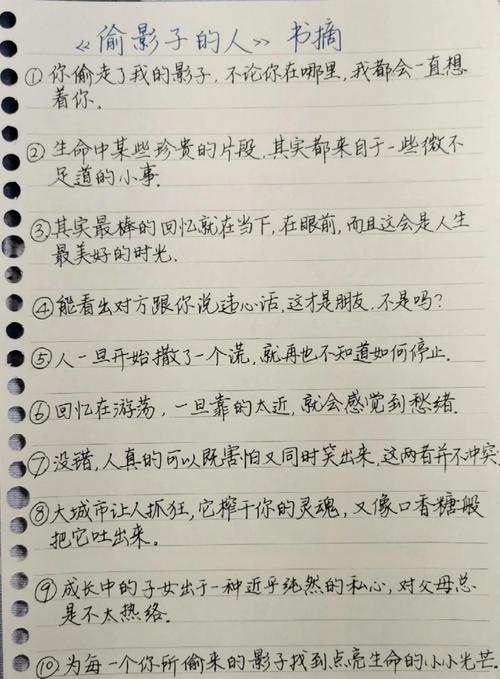 《偷影子的人》书摘
①你偷走了我的影子,不论你在哪里,我都会一直想
着你.
②生命中某些珍贵的片段,其实都来自于一些微不
足道的小事.
③其实最棒的回忆就在当下,在眼前,而且这会是人生
最美好的时光.
④能看出对方跟你说违心话,这才是朋友.不是吗?
⑤人一旦开始撒了一个谎,就再也不知道如何停止.
⑥回忆在游荡,一旦靠的太近,就会感觉到愁绪.
⑦没错,人真的可以既害怕又同时笑出来,这两者并不冲突
⑧大城市让人抓狂,它榨干你的灵魂,又像口香糖般
把它吐出来。
⑨成长中的子女出于一种近乎纯然的私心,对父母总
是不太热络.
⑩为每一个你所偷来的影子找到点亮生命的小小光芒.